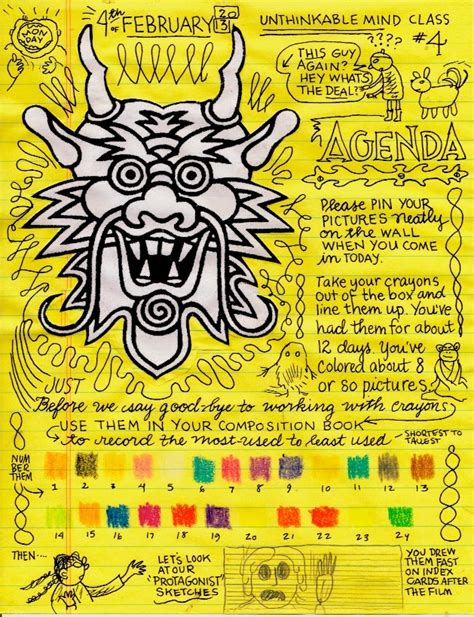 MON
DAY
4th OF FEBRUARY 2013
UNTHINKABLE MIND CLASS
#4
????
THIS GUY
AGAIN?
HEY WHATS
THE DEAL?
AGENDA
Please PIN YOUR
PICTURES neatly
on the WALL
WHEN YOU COME
IN TODAY.
Take your crayons
out of the box and
line them up. You've
had them for about
12 days. You've
colored about 8
or 80 pictures
JUST
Before we say good-bye to working with crayons
USE THEM IN YOUR COMPOSITION BOOK
to record the most used to least used
SHORTEST TO
TALLEST
NUM
BER
THEM
1 2 3 4 5 6 7 8 9 10 11 12 13
14 15 16 17 18 19 20 21 22 23 24
THEN....
LET'S LOOK
AT OUR
"PROTAGONIST"
SKETCHES
YOU DREW
THEM FAST
ON INDEX
CARDS AFTER
THE FILM